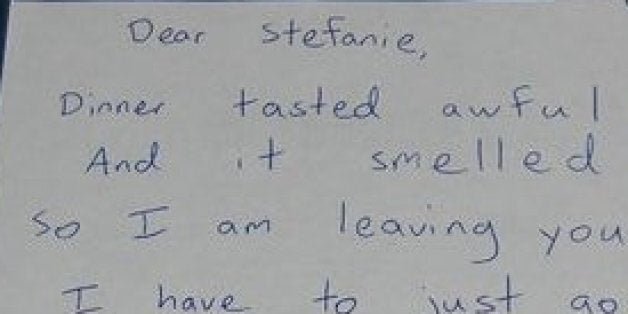 Dear Stefanie,
Dinner tasted awful
And it smelled
So I am leaving you
I have to just go